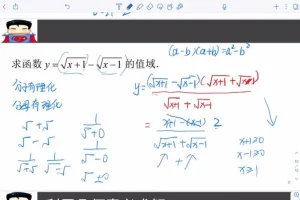 (a-b)(a+b)=a²-b²
求函数 y=√(x+1)-√(x-1) 的值域.
分子有理化
分母有理化
y=(√(x+1)-√(x-1))(√(x+1)+√(x-1))
√(x+1)+√(x-1)
√+√
√-√
1/(√+0)
= x+1-(x-1) 2
√(x+1)+√(x-1)
x+1≥0
x-1≥0
x≥1
1/(√+√) 1/(√-√)
1/(√-0)
√±0
↗ + ↗